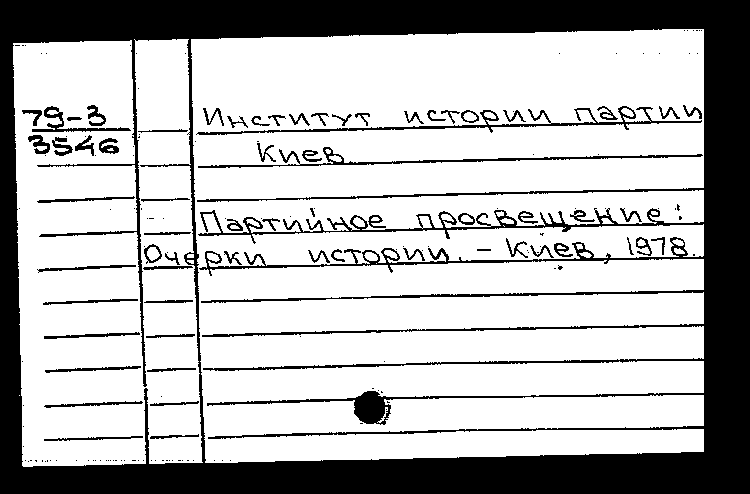 79-3
3546
Институт истории партии
Киев
Партийное просвещение:
Очерки истории. - Киев, 1978.